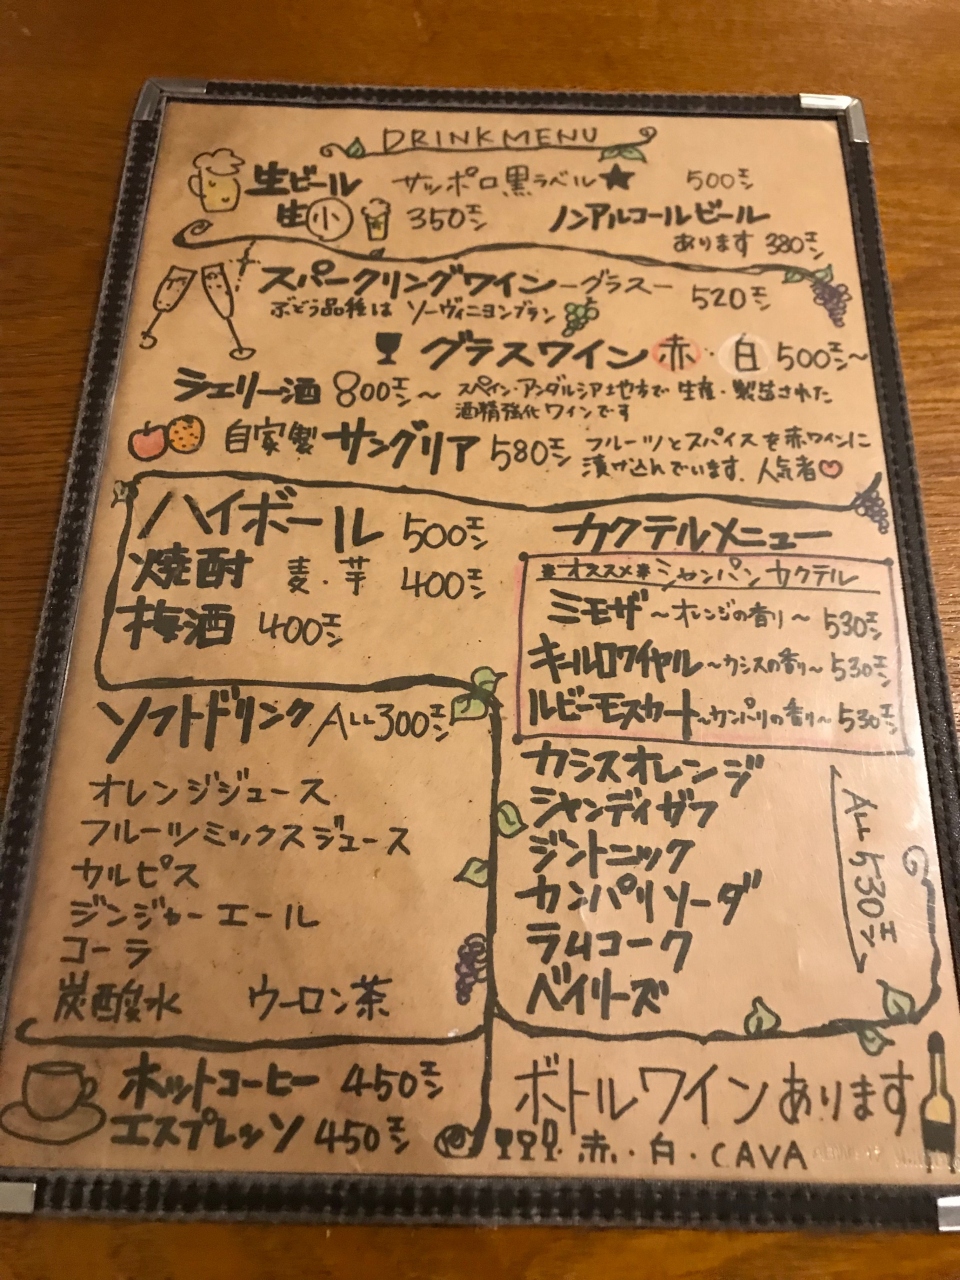 DRINK MENU
生ビール サッポロ黒ラベル★ 500エン
生小 350エン ノンアルコールビール
あります 380エン
スパークリングワイン ーグラスー 520エン
ぶどう品種は ソーヴィニヨンブラン
グラスワイン 赤・白 500エン〜
シェリー酒 800エン〜 スペイン・アンダルシア地方で 生産・製造された
酒精強化ワインです
自家製 サングリア 580エン フルーツとスパイスを赤ワインに
漬け込んでいます。人気者♡
ハイボール 500エン
焼酎 麦・芋 400エン
梅酒 400エン
ソフトドリンク ALL300エン
オレンジジュース
フルーツミックスジュース
カルピス
ジンジャーエール
コーラ
炭酸水 ウーロン茶
ホットコーヒー 450エン
エスプレッソ 450エン
カクテルメニュー
*オススメ* シャンパンカクテル
ミモザ 〜オレンジの香り〜 530エン
キールロワイヤル 〜カシスの香り〜 530エン
ルビーモスカート 〜カンパリの香り〜 530エン
カシスオレンジ
シャンディガフ
ジントニック
カンパリソーダ
ラムコーク
ベイリーズ
ALL 530エン
ボトルワインあります
赤・白・CAVA